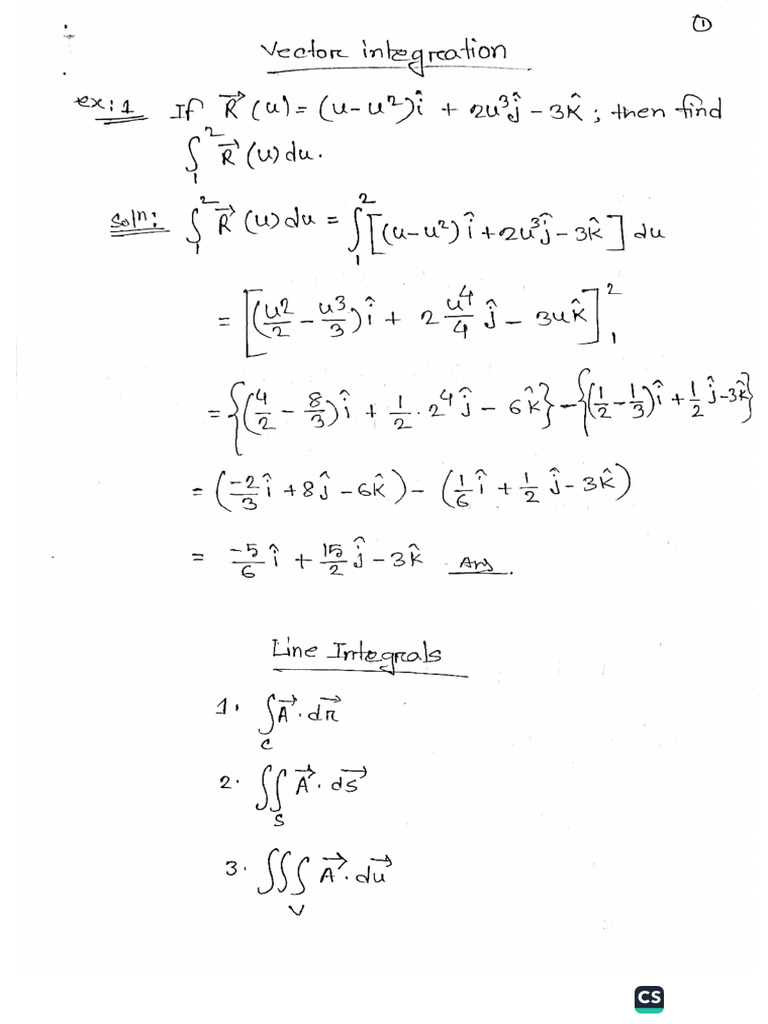 ①
Vector integration
ex: 1 If R⃗(u) = (u-u²)î + 2u³ĵ - 3k̂ ; then find
∫₁² R⃗(u) du.
Soln: ∫₁² R⃗(u) du = ∫₁² [(u-u²)î + 2u³ĵ - 3k̂] du
= [(u²/2 - u³/3)î + 2 u⁴/4 ĵ - 3uk̂]₁²
= {(4/2 - 8/3)î + 1/2 . 2⁴ĵ - 6k̂} - {(1/2 - 1/3)î + 1/2 ĵ - 3k̂}
= (-2/3 î + 8ĵ - 6k̂) - (1/6 î + 1/2 ĵ - 3k̂)
= -5/6 î + 15/2 ĵ - 3k̂ Ans.
Line Integrals
1. ∫_C A⃗ . dr⃗
2. ∬_S A⃗ . ds⃗
3. ∭_V A⃗ . du⃗
CS